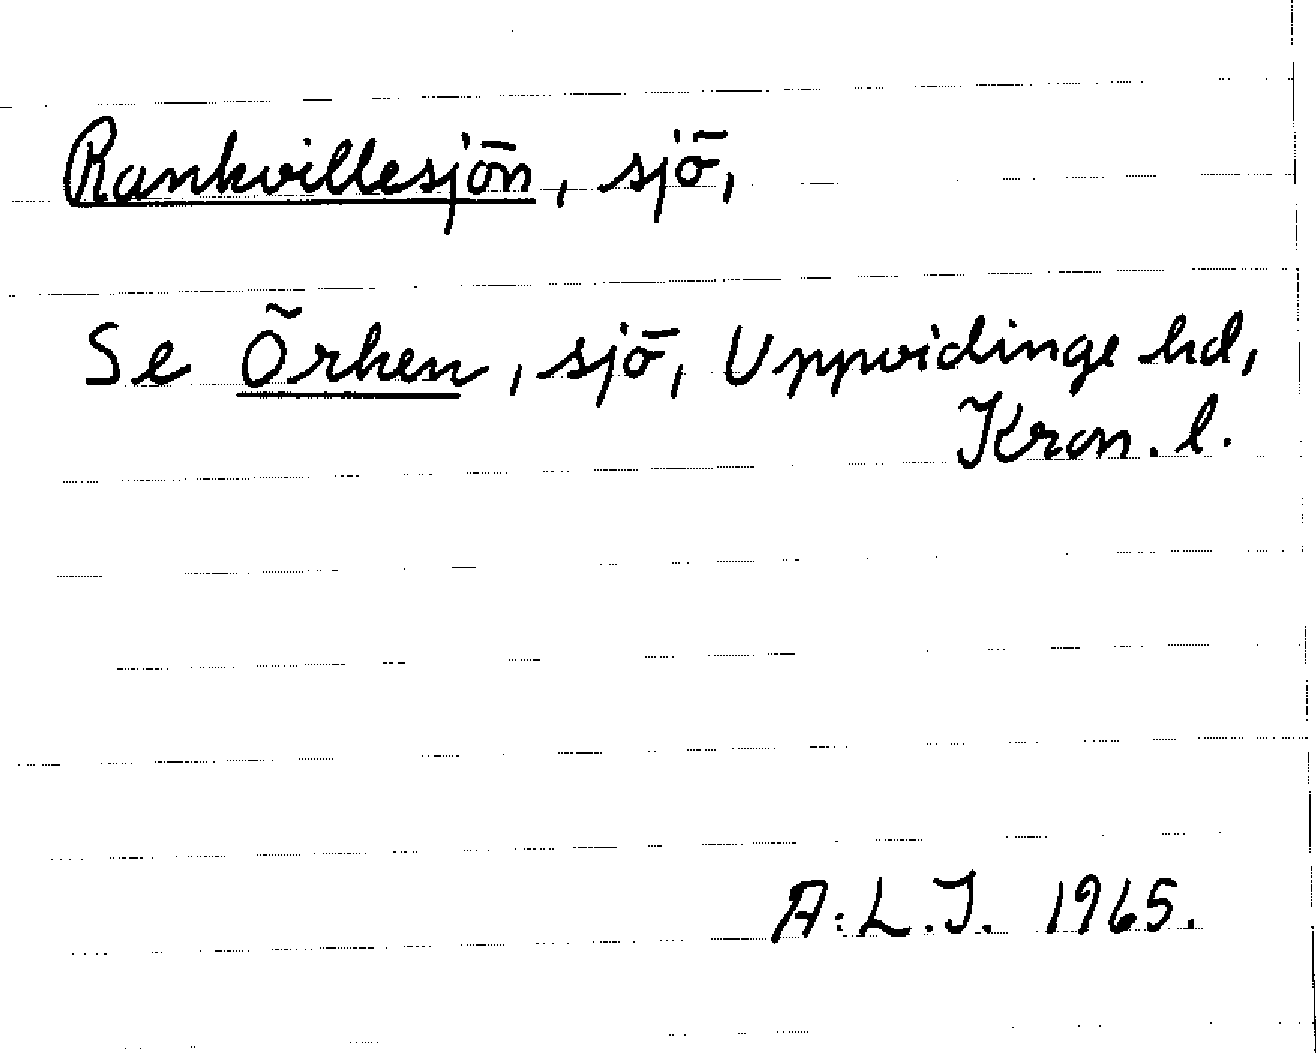 Rankvillesjön, sjö,
Se Örken, sjö, Uppvidinge hd,
Kron. l.
A.L.J. 1965.